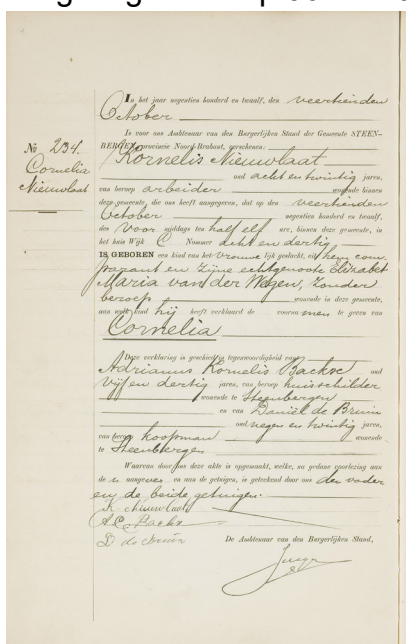 In het jaar negentien honderd en twaalf, den veertienden
October
Is voor ons Ambtenaar van den Burgerlijken Stand der Gemeente STEEN-
BERGEN, provincie Noord-Brabant, verschenen:
No 234.
Cornelia
Nieuwlaat
Kornelis Nieuwlaat
oud acht en twintig jaren,
van beroep arbeider wonende binnen
deze gemeente, die ons heeft aangegeven, dat op den veertienden
October negentien honderd en twaalf,
des voor middags ten half elf ure, binnen deze gemeente, in
het huis Wijk C Nommer acht en dertig
IS GEBOREN een kind van het vrouwelijk geslacht, uit hem com-
parant en zijne echtgenoote Elizabet
Maria van der Wegen, zonder
beroep wonende in deze gemeente,
aan welk kind hij heeft verklaard de voornamen te geven van
Cornelia
Deze verklaring is geschied in tegenwoordigheid van
Adrianus Kornelis Backx oud
vijf en dertig jaren, van beroep huisschilder
wonende te Steenbergen
en van Daniël de Bruin
oud negen en twintig jaren,
van beroep koopman wonende
te Steenbergen
Waarvan door ons deze akte is opgemaakt, welke, na gedane voorlezing aan
de aangever en aan de getuigen, is geteekend door ons den vader
en de beide getuigen.
K. Nieuwlaat
A.C. Backx
D de Bruin
De Ambtenaar van den Burgerlijken Stand,